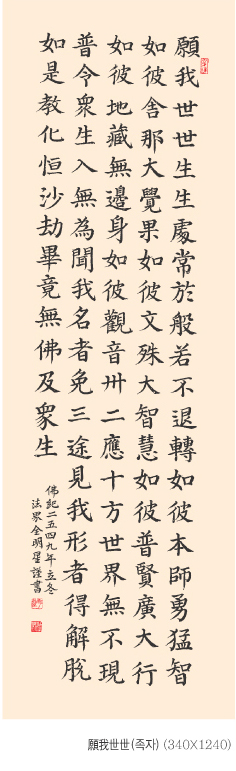 願我世世生生處常於般若不退轉如彼本師勇猛智
如彼舍那大覺果如彼文殊大智慧如彼普賢廣大行
如彼地藏無邊身如彼觀音卅二應十方世界無不現
普令眾生入無為聞我名者免三途見我形者得解脫
如是教化恒沙劫畢竟無佛及眾生
佛紀二五四九年立冬
法界金明星謹書
願我世世(족자) (340X1240)